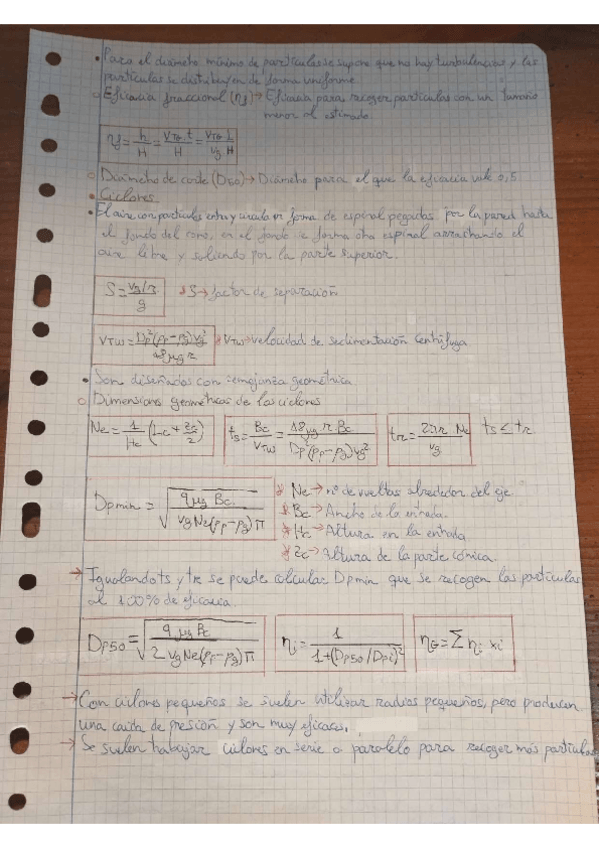 • Para el diámetro mínimo de partículas se supone que no hay turbulencias y las
partículas se distribuyen de forma uniforme
○ Eficacia fraccional (ηf) → Eficacia para recoger partículas con un tamaño
menor al estimado.
ηf = h/H = VTG·t/H = VTG L/vg H
○ Diámetro de corte (D50) → Diámetro para el que la eficacia vale 0,5
• Ciclones
• El aire con partículas entra y circula en forma de espiral pegados por la pared hasta
el fondo del cono, en el fondo se forma otra espiral arrastrando el
aire libre y saliendo por la parte superior.
S = vg/r / g S → factor de separación
VTW = Dp²(ρp-ρg)vg² / 18 μg r VTW → velocidad de sedimentación centrífuga
• Son diseñados con semejanza geométrica
○ Dimensiones geométricas de los ciclones
Ne = 1/Hc (Lc + Zc/2) ts = Bc/VTW = 18 μg r Bc / Dp²(ρp-ρg)vg² tr = 2πr Ne / vg ts < tr
Dpmin = √(9 μg Bc / vg Ne(ρp-ρg) π)
Ne → nº de vueltas alrededor del eje
Bc → Ancho de la entrada.
Hc → Altura en la entrada
Zc → altura de la parte cónica.
→ Igualando ts y tr se puede calcular Dpmin que se recogen las partículas
al 100% de eficacia.
Dp50 = √(9 μg Bc / 2 vg Ne(ρp-ρg) π) ηi = 1 / 1+(Dp50/Dpi)² ηG = Σ ηi xi
→ Con ciclones pequeños se suelen utilizar radios pequeños, pero producen
una caída de presión y son muy eficaces.
→ Se suelen trabajar ciclones en serie o paralelo para recoger más partículas